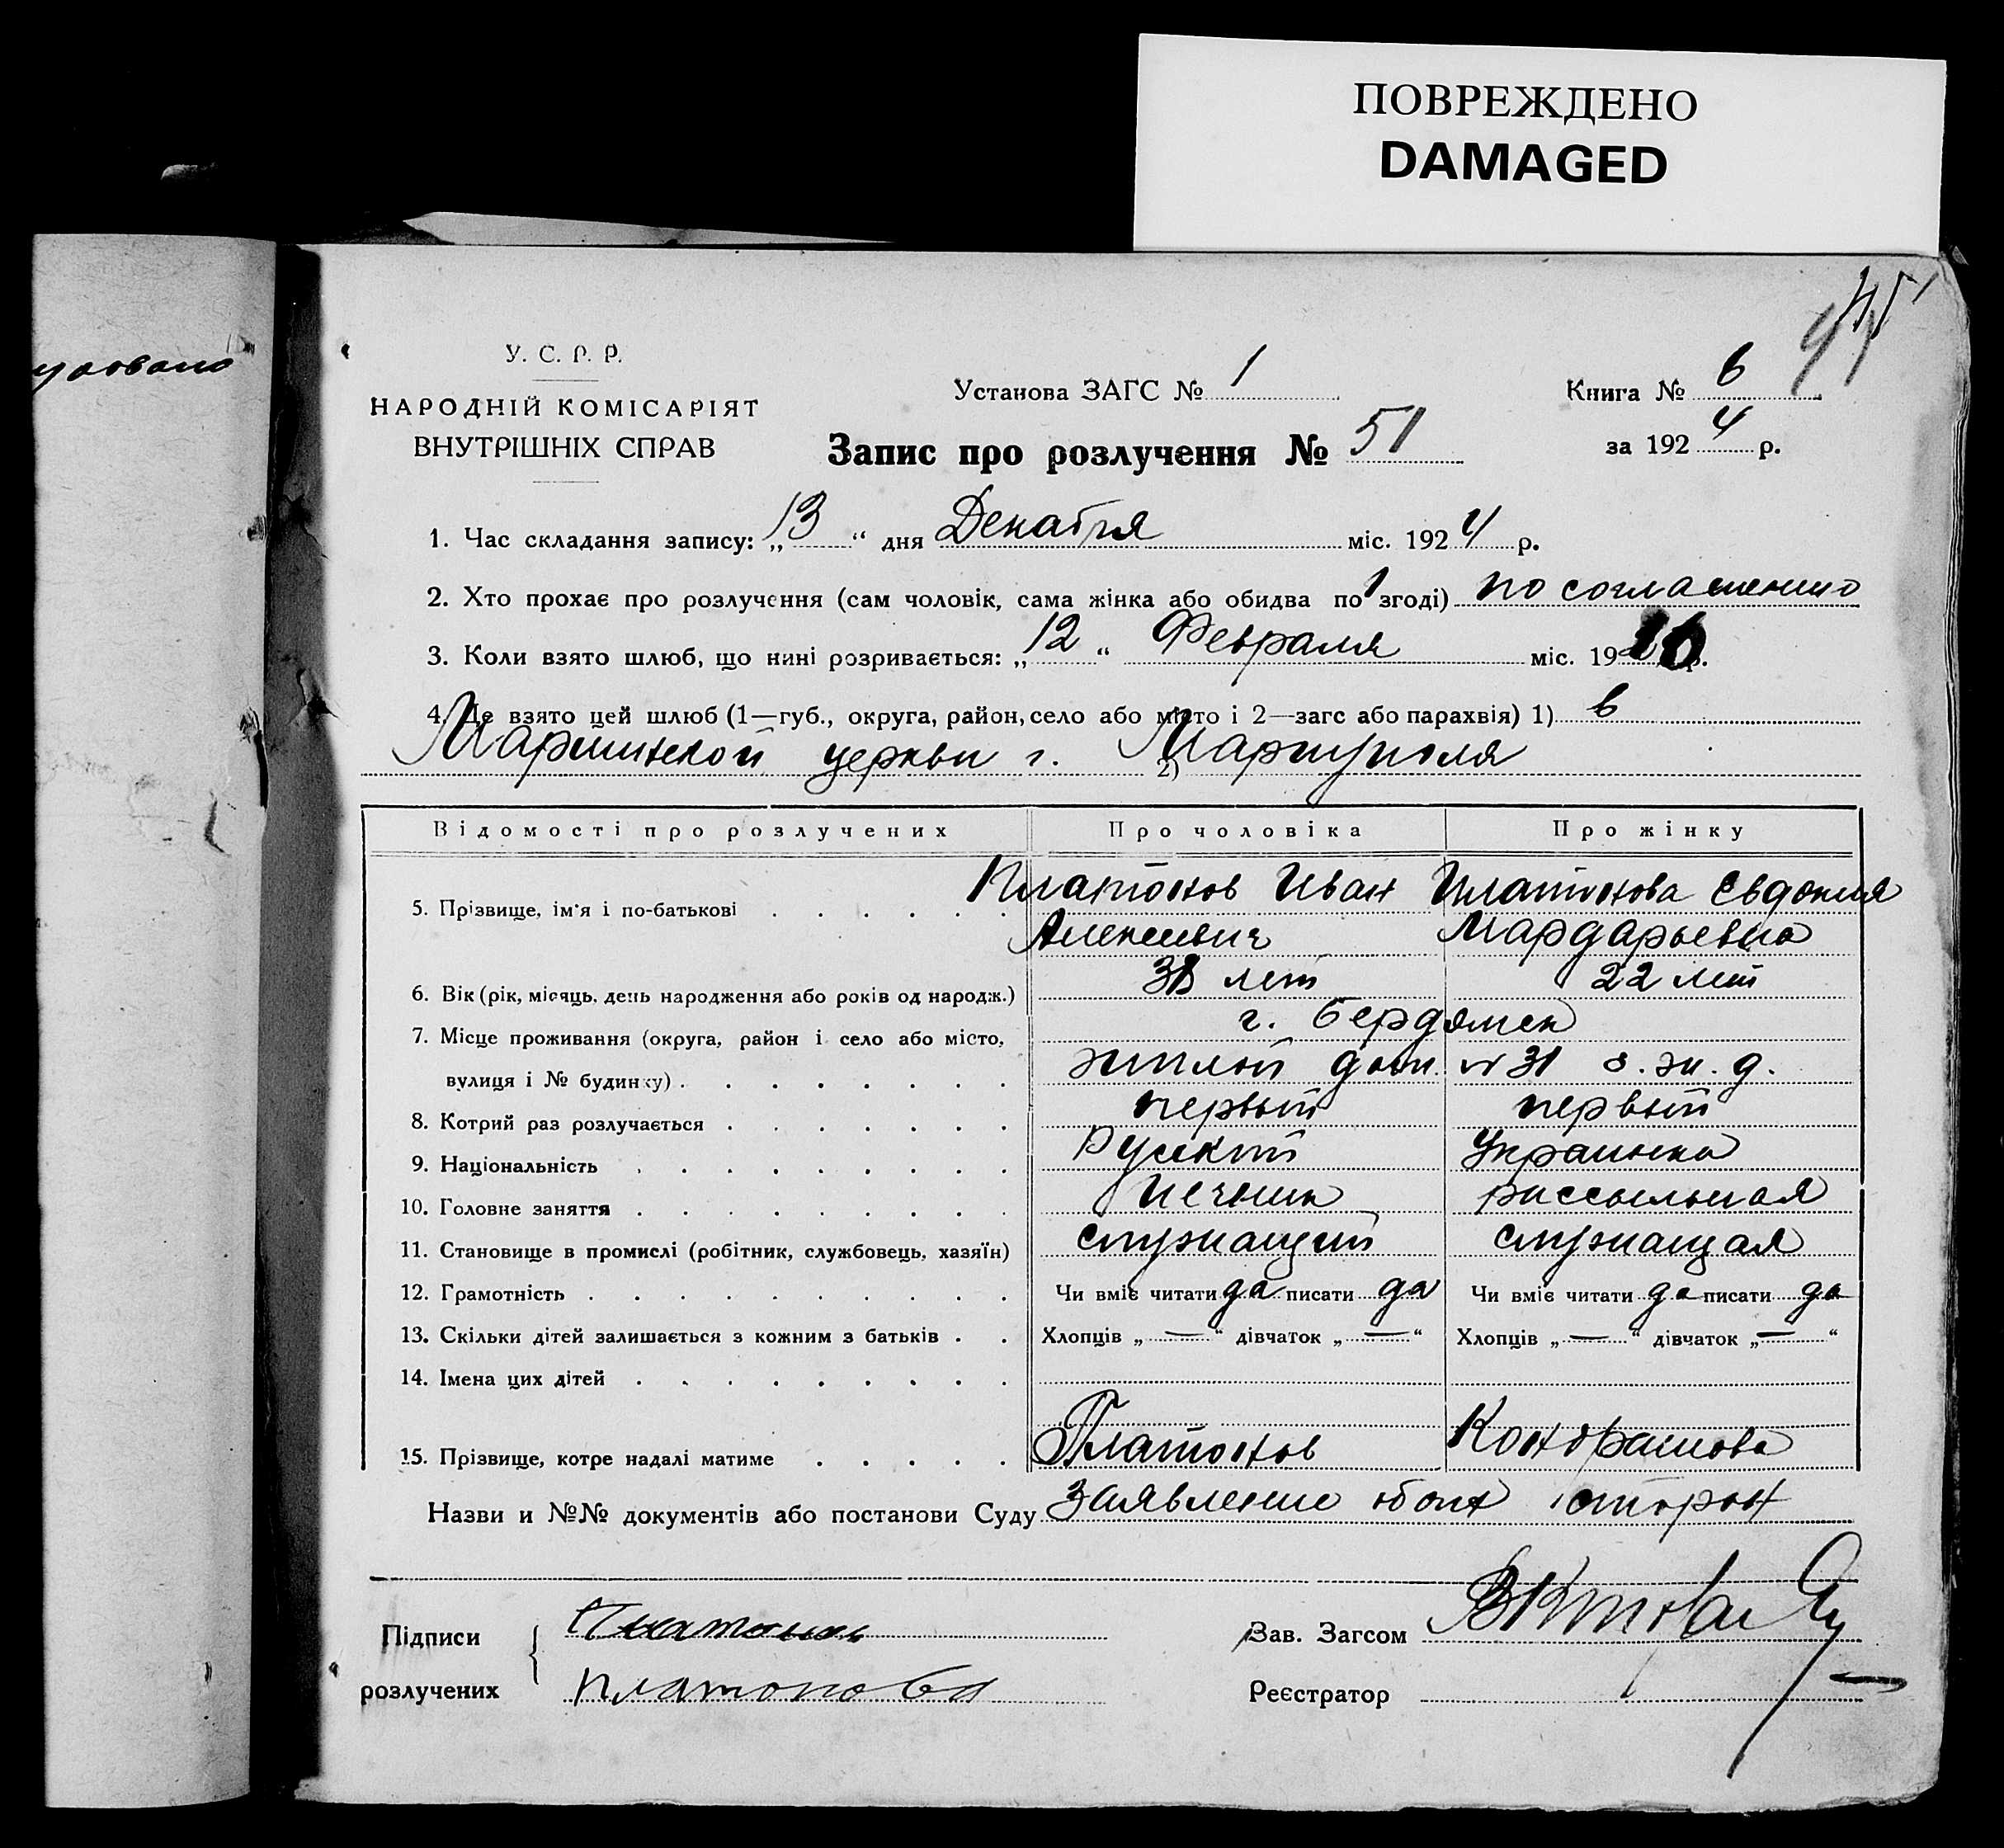 ПОВРЕЖДЕНО
DAMAGED
У. С. Р. Р.
НАРОДНІЙ КОМІСАРІЯТ
ВНУТРІШНІХ СПРАВ
Установа ЗАГС № 1
Книга № 6
за 1924 р.
Запис про розлучення № 51
1. Час складання запису: „13“ дня Декабря міс. 1924 р.
2. Хто прохає про розлучення (сам чоловік, сама жінка або обидва по згоді) по соглашению
3. Коли взято шлюб, що нині розривається: „12“ Февраля міс. 19 р.
4. Де взято цей шлюб (1—губ., округа, район, село або місто і 2—загс або парахвія) 1) в
Мариинской церкви г. 2) Мариуполя
Відомості про розлучених Про чоловіка Про жінку
5. Прізвище, ім'я і по-батькові Платонов Иван Платонова Евдокия
Алексеевич Мардарьевна
6. Вік (рік, місяць, день народження або років од народж.) 38 лет 22 лет
7. Місце проживання (округа, район і село або місто, г. Бердянск
вулиця і № будинку) жилой дом. № 31 ж. д.
8. Котрий раз розлучається первый первый
9. Національність Русский Украинка
10. Головне заняття Печник рассыльная
11. Становище в промислі (робітник, службовець, хазяїн) служащий служащая
12. Грамотність Чи вміє читати да писати да Чи вміє читати да писати да
13. Скільки дітей залишається з кожним з батьків Хлопців „—“ дівчаток „—“ Хлопців „—“ дівчаток „—“
14. Імена цих дітей
15. Прізвище, котре надалі матиме Платонов Кондрашова
Назви и №№ документів або постанови Суду Заявление обоих сторон
Підписи Платонов
розлучених Платонова
Зав. Загсом
Реєстратор